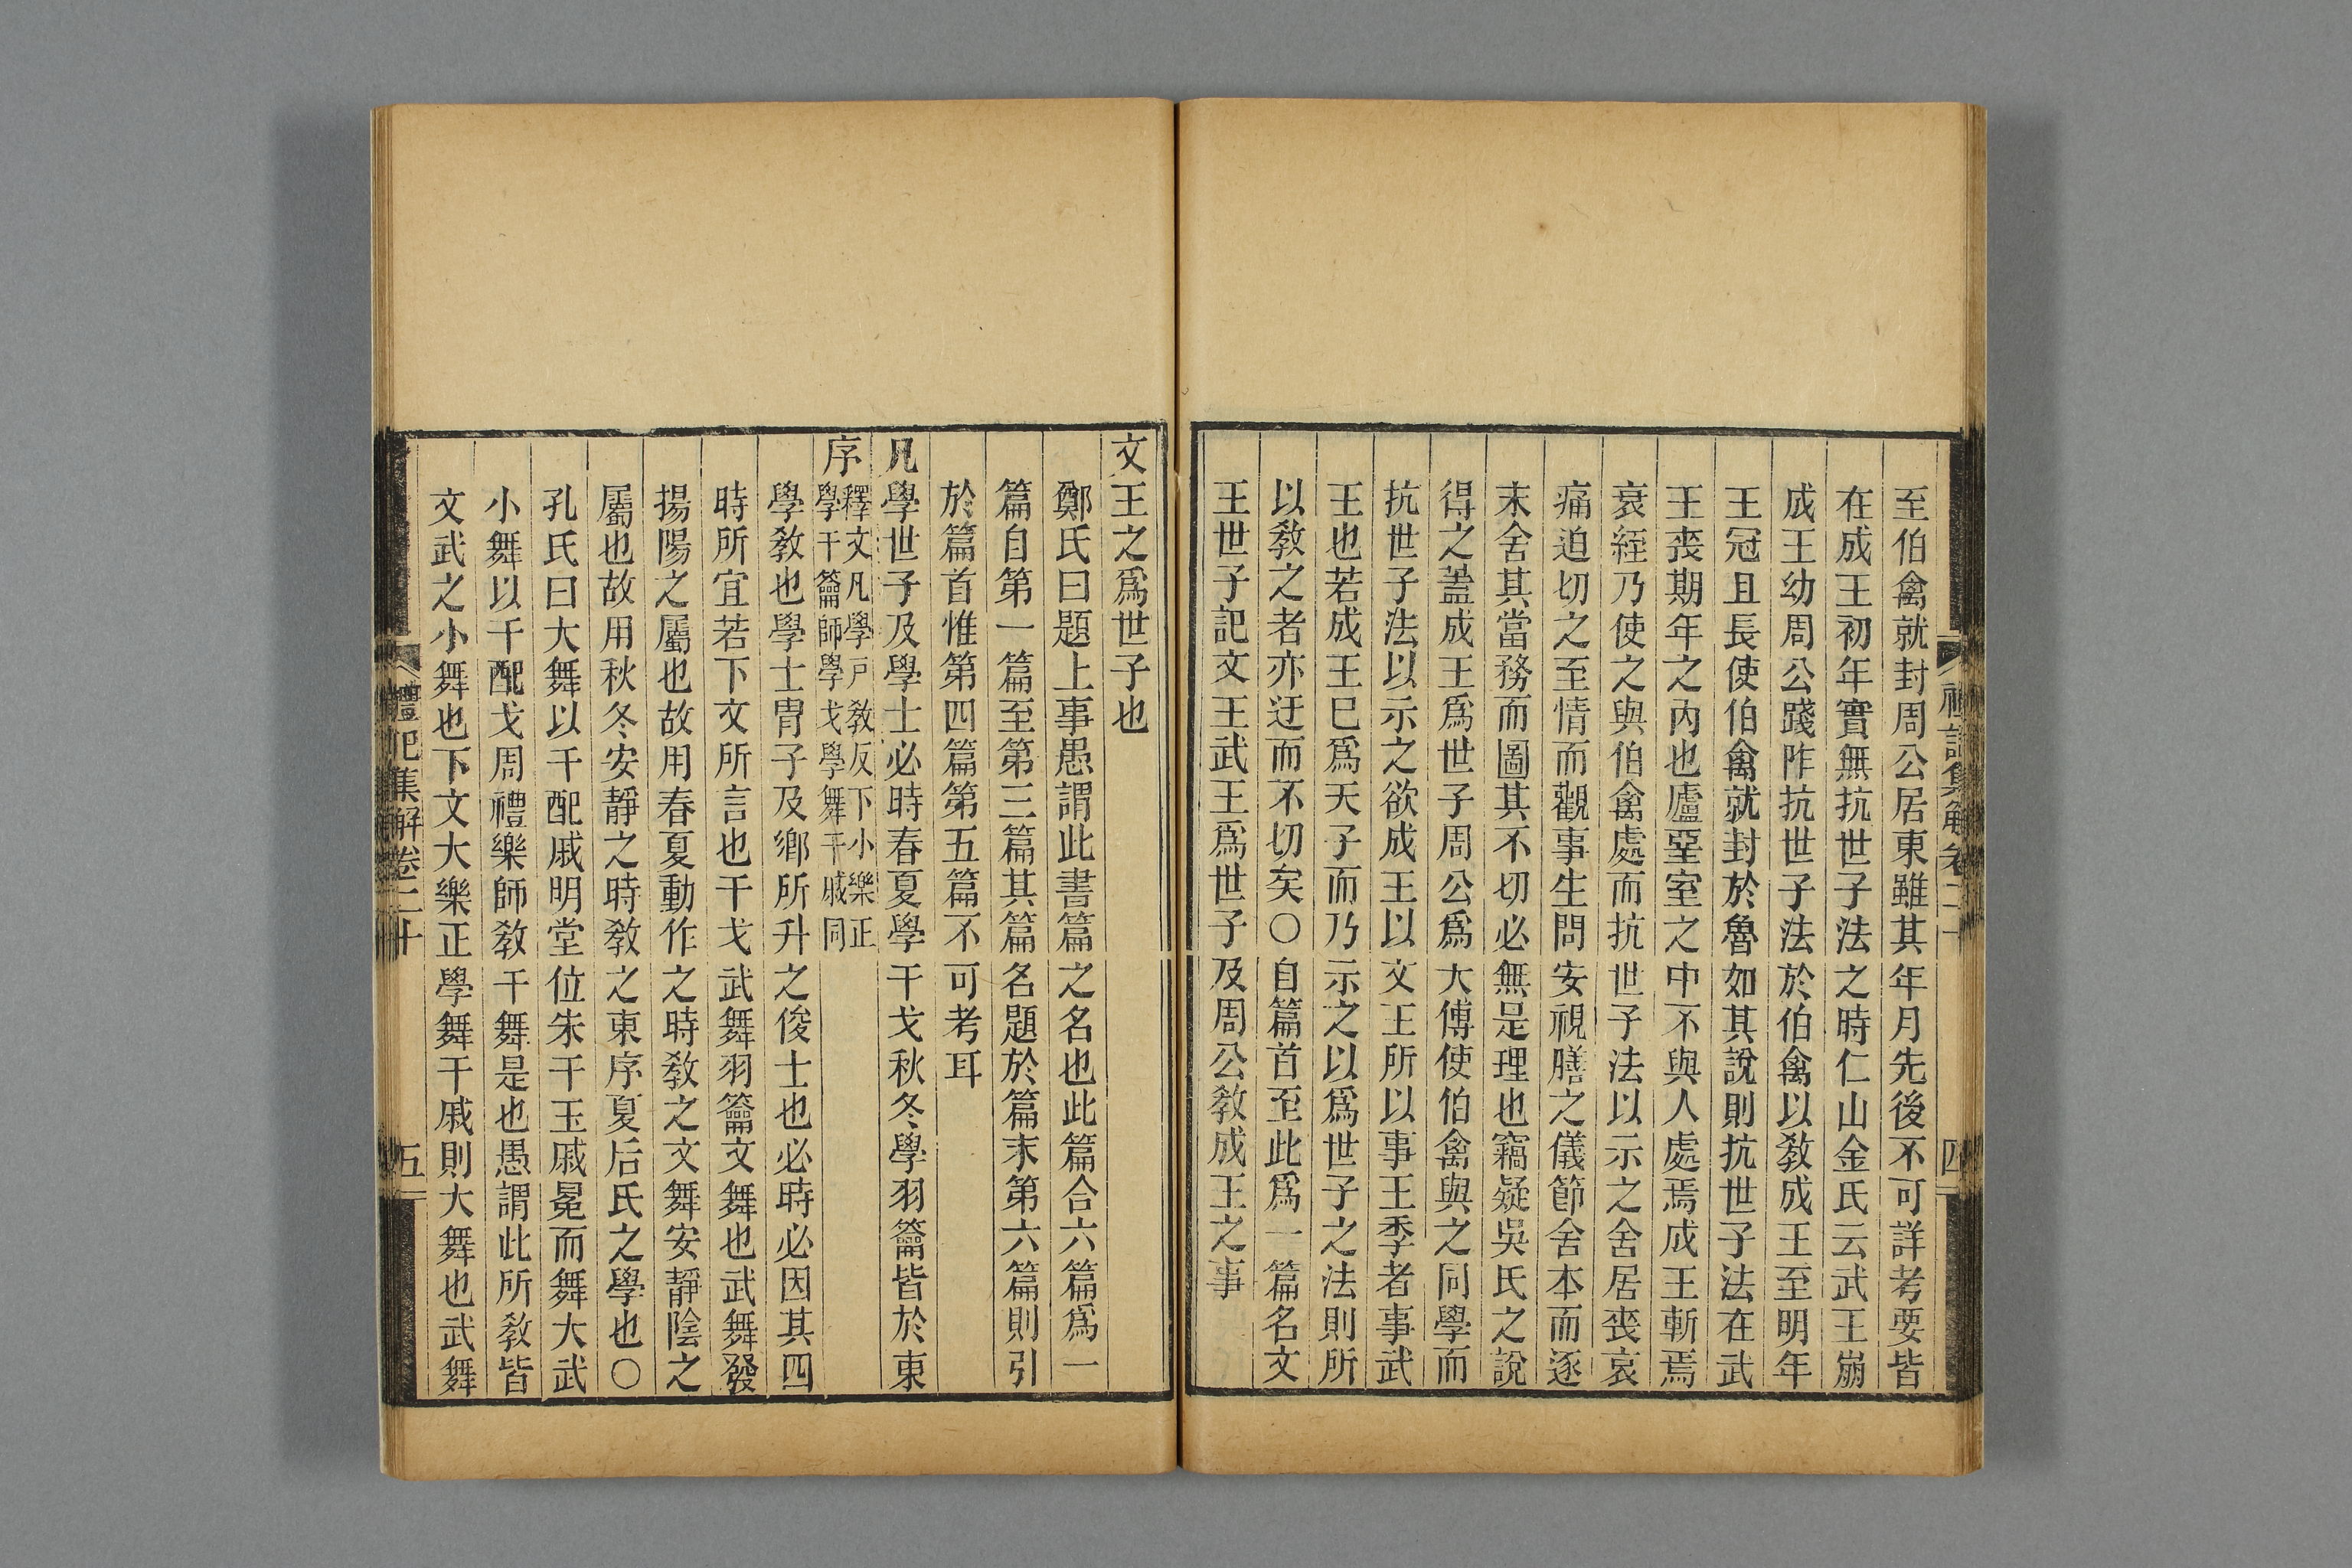 至伯禽就封周公居東雖其年月先後不可詳考要皆
在成王初年實無抗世子法之時仁山金氏云武王崩
成王幼周公踐阼抗世子法於伯禽以敎成王至明年
王冠且長使伯禽就封於魯如其說則抗世子法在武
王喪期年之內也廬堊室之中不與人處焉成王斬焉
衰絰乃使之與伯禽處而抗世子法以示之舍居喪哀
痛迫切之至情而觀事生問安視膳之儀節舍本而逐
末舍其當務而圖其不切必無是理也竊疑吳氏之說
得之蓋成王爲世子周公爲大傅使伯禽與之同學而
抗世子法以示之欲成王以文王所以事王季者事武
王也若成王已爲天子而乃示之以爲世子之法則所
以敎之者亦迂而不切矣○自篇首至此爲一篇名文
王世子記文王武王爲世子及周公敎成王之事
禮記集解卷二十
四
文王之爲世子也
鄭氏曰題上事愚謂此書篇之名也此篇合六篇爲一
篇自第一篇至第三篇其篇名題於篇末第六篇則引
於篇首惟第四篇第五篇不可考耳
凡學世子及學士必時春夏學干戈秋冬學羽籥皆於東
序
釋文凡學戸敎反下小樂正
學干籥師學戈學舞干戚同
學敎也學士冑子及鄉所升之俊士也必時必因其四
時所宜若下文所言也干戈武舞羽籥文舞也武舞發
揚陽之屬也故用春夏動作之時敎之文舞安靜陰之
屬也故用秋冬安靜之時敎之東序夏后氏之學也○
孔氏曰大舞以干配戚明堂位朱干玉戚冕而舞大武
小舞以干配戈周禮樂師敎干舞是也愚謂此所敎皆
文武之小舞也下文大樂正學舞干戚則大舞也武舞
禮記集解卷二十
五